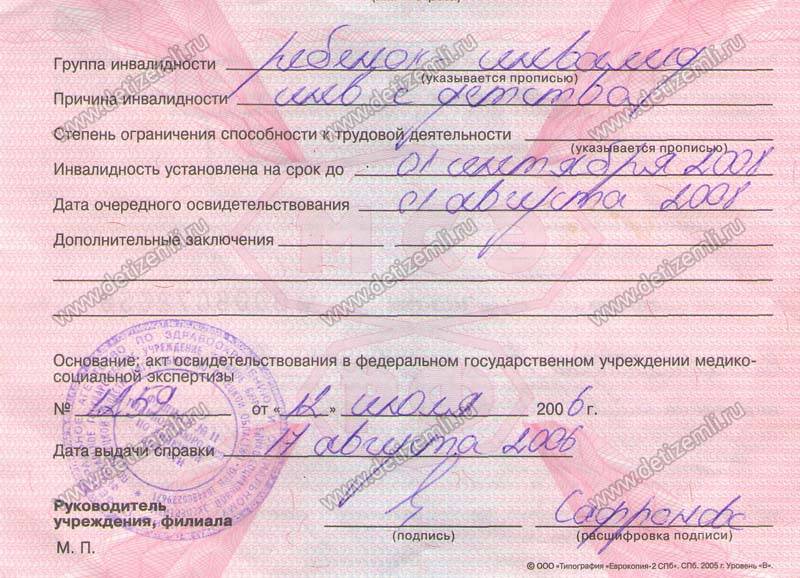 Группа инвалидности ребенок-инвалид
(указывается прописью)
Причина инвалидности инв с детства
Степень ограничения способности к трудовой деятельности
(указывается прописью)
Инвалидность установлена на срок до 01 сентября 2008
Дата очередного освидетельствования 01 августа 2008
Дополнительные заключения
Основание: акт освидетельствования в федеральном государственном учреждении медико-
социальной экспертизы
№ 1259 от «12» июля 2006 г.
Дата выдачи справки 17 августа 2006
Руководитель
учреждения, филиала
Сафронова
(подпись) (расшифровка подписи)
М. П.
© ООО «Типография «Еврокопия-2 СПб». СПб. 2005 г. Уровень «В».
www.detizemli.ru